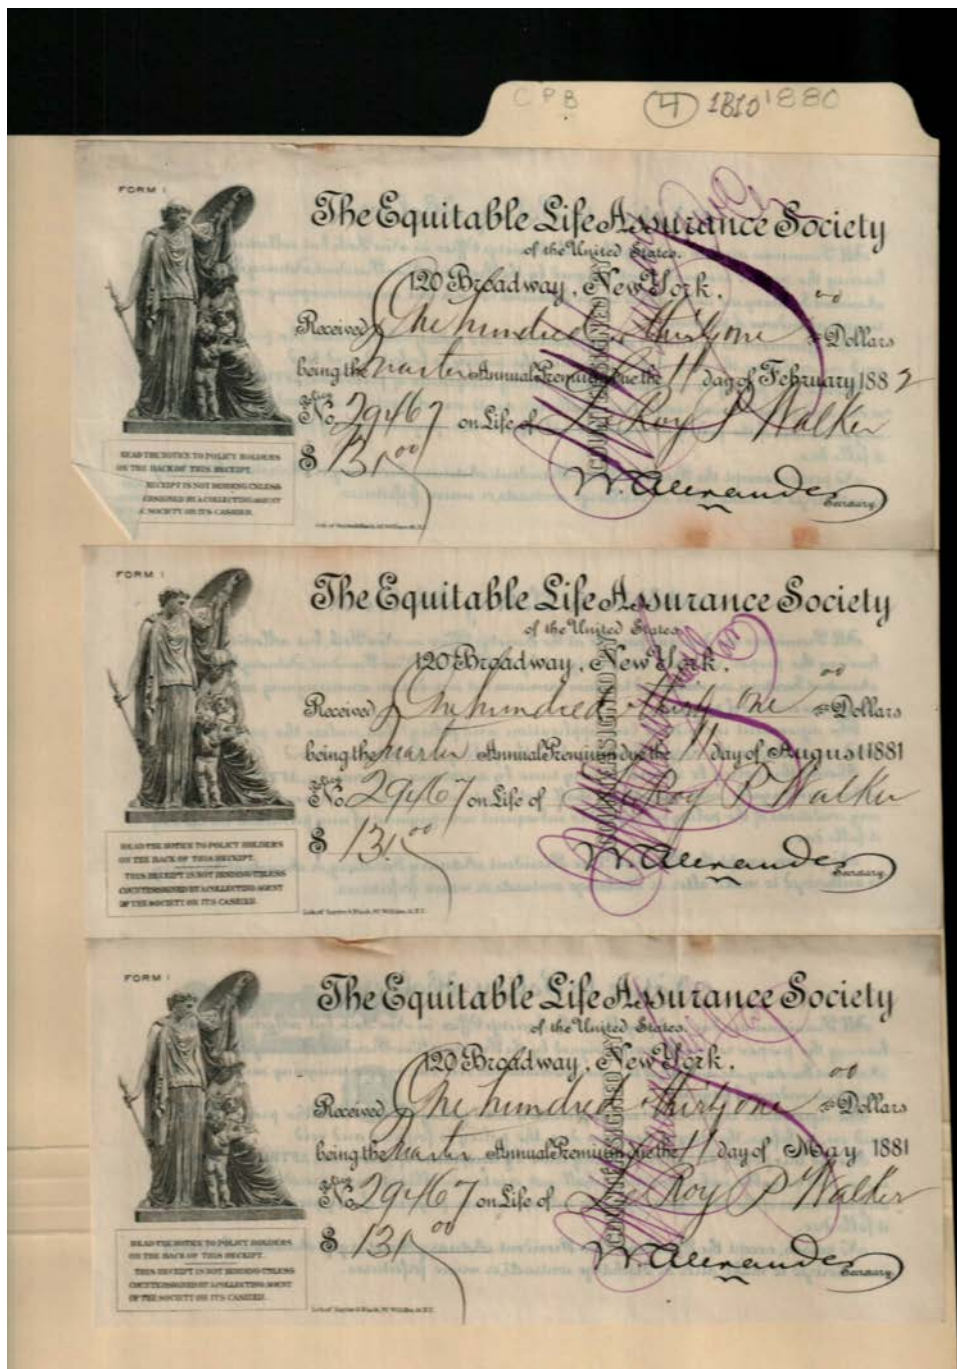 CPB 4 1BIO 1880
FORM 1
The Equitable Life Assurance Society
of the United States.
120 Broadway, New York.
Received One hundred & thirty one 00 Dollars
being the quarter Annual Premium due the 11 day of February 1882
No. 29467 on Life of Le Roy P Walker
$ 131 00
W. Alexander
Secretary
READ THE NOTICE TO POLICY HOLDERS
ON THE BACK OF THIS RECEIPT.
RECEIPT IS NOT BINDING UNLESS
ERSIGNED BY A COLLECTING AGENT
SOCIETY OR ITS CASHIER.
COUNTERSIGNED BY
FORM 1
The Equitable Life Assurance Society
of the United States.
120 Broadway, New York.
Received One hundred & thirty One 00 Dollars
being the quarter Annual Premium due the 11 day of August 1881
No. 29467 on Life of Le Roy P Walker
$ 131 00
W. Alexander
Secretary
READ THE NOTICE TO POLICY HOLDERS
ON THE BACK OF THIS RECEIPT.
THIS RECEIPT IS NOT BINDING UNLESS
COUNTERSIGNED BY A COLLECTING AGENT
OF THE SOCIETY OR ITS CASHIER.
COUNTERSIGNED BY
FORM 1
The Equitable Life Assurance Society
of the United States.
120 Broadway, New York.
Received One hundred & thirty one 00 Dollars
being the quarter Annual Premium due the 11 day of May 1881
No. 29467 on Life of Le Roy P Walker
$ 131 00
W. Alexander
Secretary
READ THE NOTICE TO POLICY HOLDERS
ON THE BACK OF THIS RECEIPT.
THIS RECEIPT IS NOT BINDING UNLESS
COUNTERSIGNED BY A COLLECTING AGENT
OF THE SOCIETY OR ITS CASHIER.
COUNTERSIGNED BY